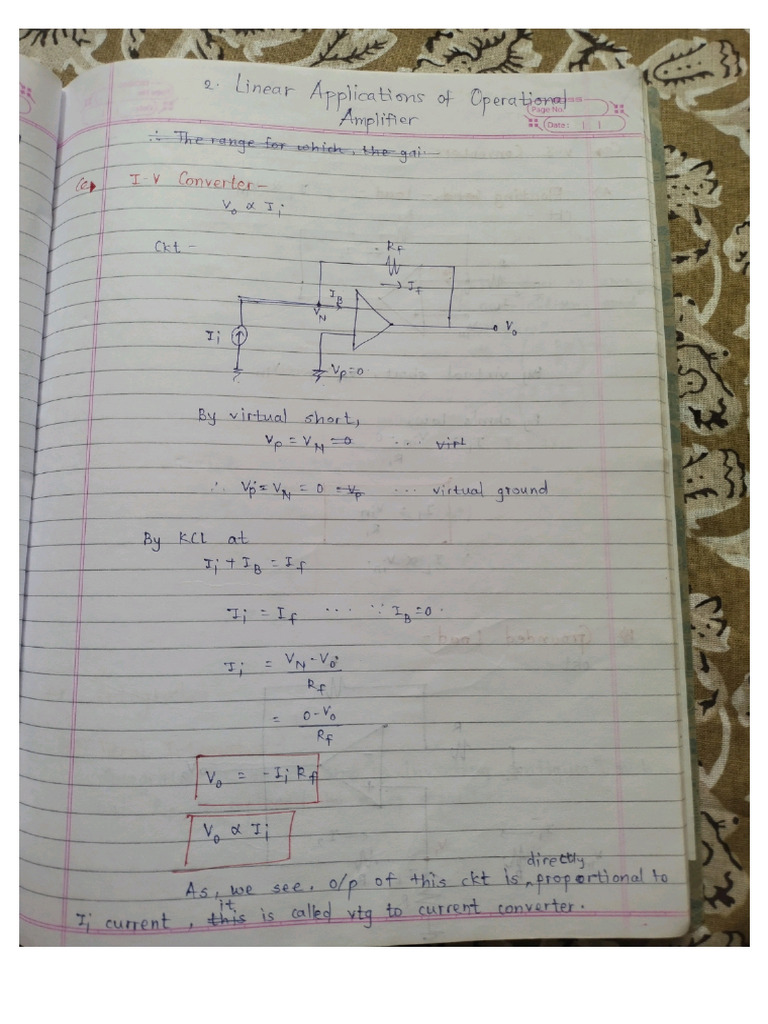 2. Linear Applications of Operational
Amplifier
Page No.
Date: | |
∴ The range for which, the gai
I-V Converter-
V₀ ∝ Iᵢ
Ckt -
R_f
→ I_f
I_B
V_N
Iᵢ
V₀
V_P=0
By virtual short,
V_P = V_N = 0 .... virt
∴ V_P = V_N = 0 = V_P ... virtual ground
By KCL at
Iᵢ + I_B = I_f
Iᵢ = I_f .... ∵ I_B = 0.
Iᵢ = (V_N - V₀) / R_f
= (0 - V₀) / R_f
V₀ = -Iᵢ R_f
V₀ ∝ Iᵢ
directly
As, we see. o/p of this ckt is, proportional to
it
Iᵢ current, this is called vtg to current converter.